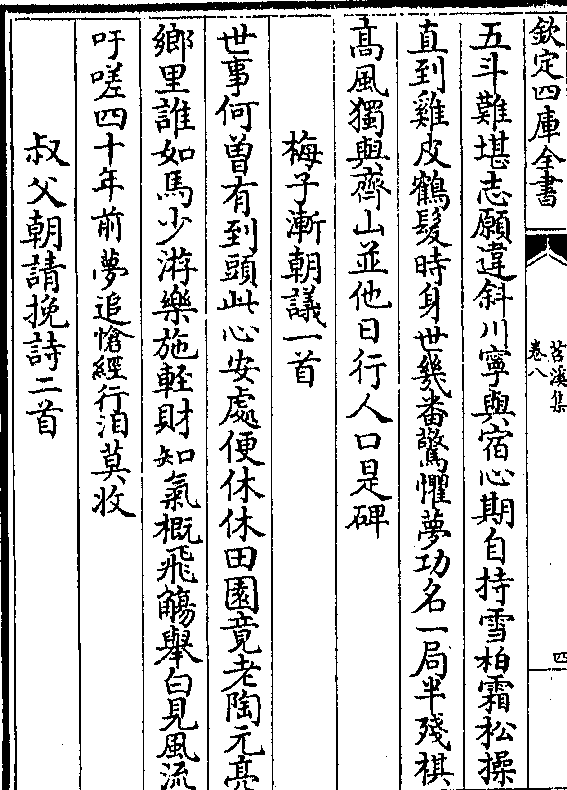 欽定四庫全書
苕溪集
卷八
四
五斗難堪志願違斜川寧與宿心期自持雪柏霜松操
直到雞皮鶴髮時身世幾番驚懼夢功名一局半殘棋
髙風獨與齊山並他日行人口是碑
梅子漸朝議一首
世事何曽有到頭此心安處便休休田園竟老陶元亮
鄉里誰如馬少游樂施輕財知氣概飛觴舉白見風流
吁嗟四十年前夢追愴經行淚莫收
叔父朝請挽詩二首